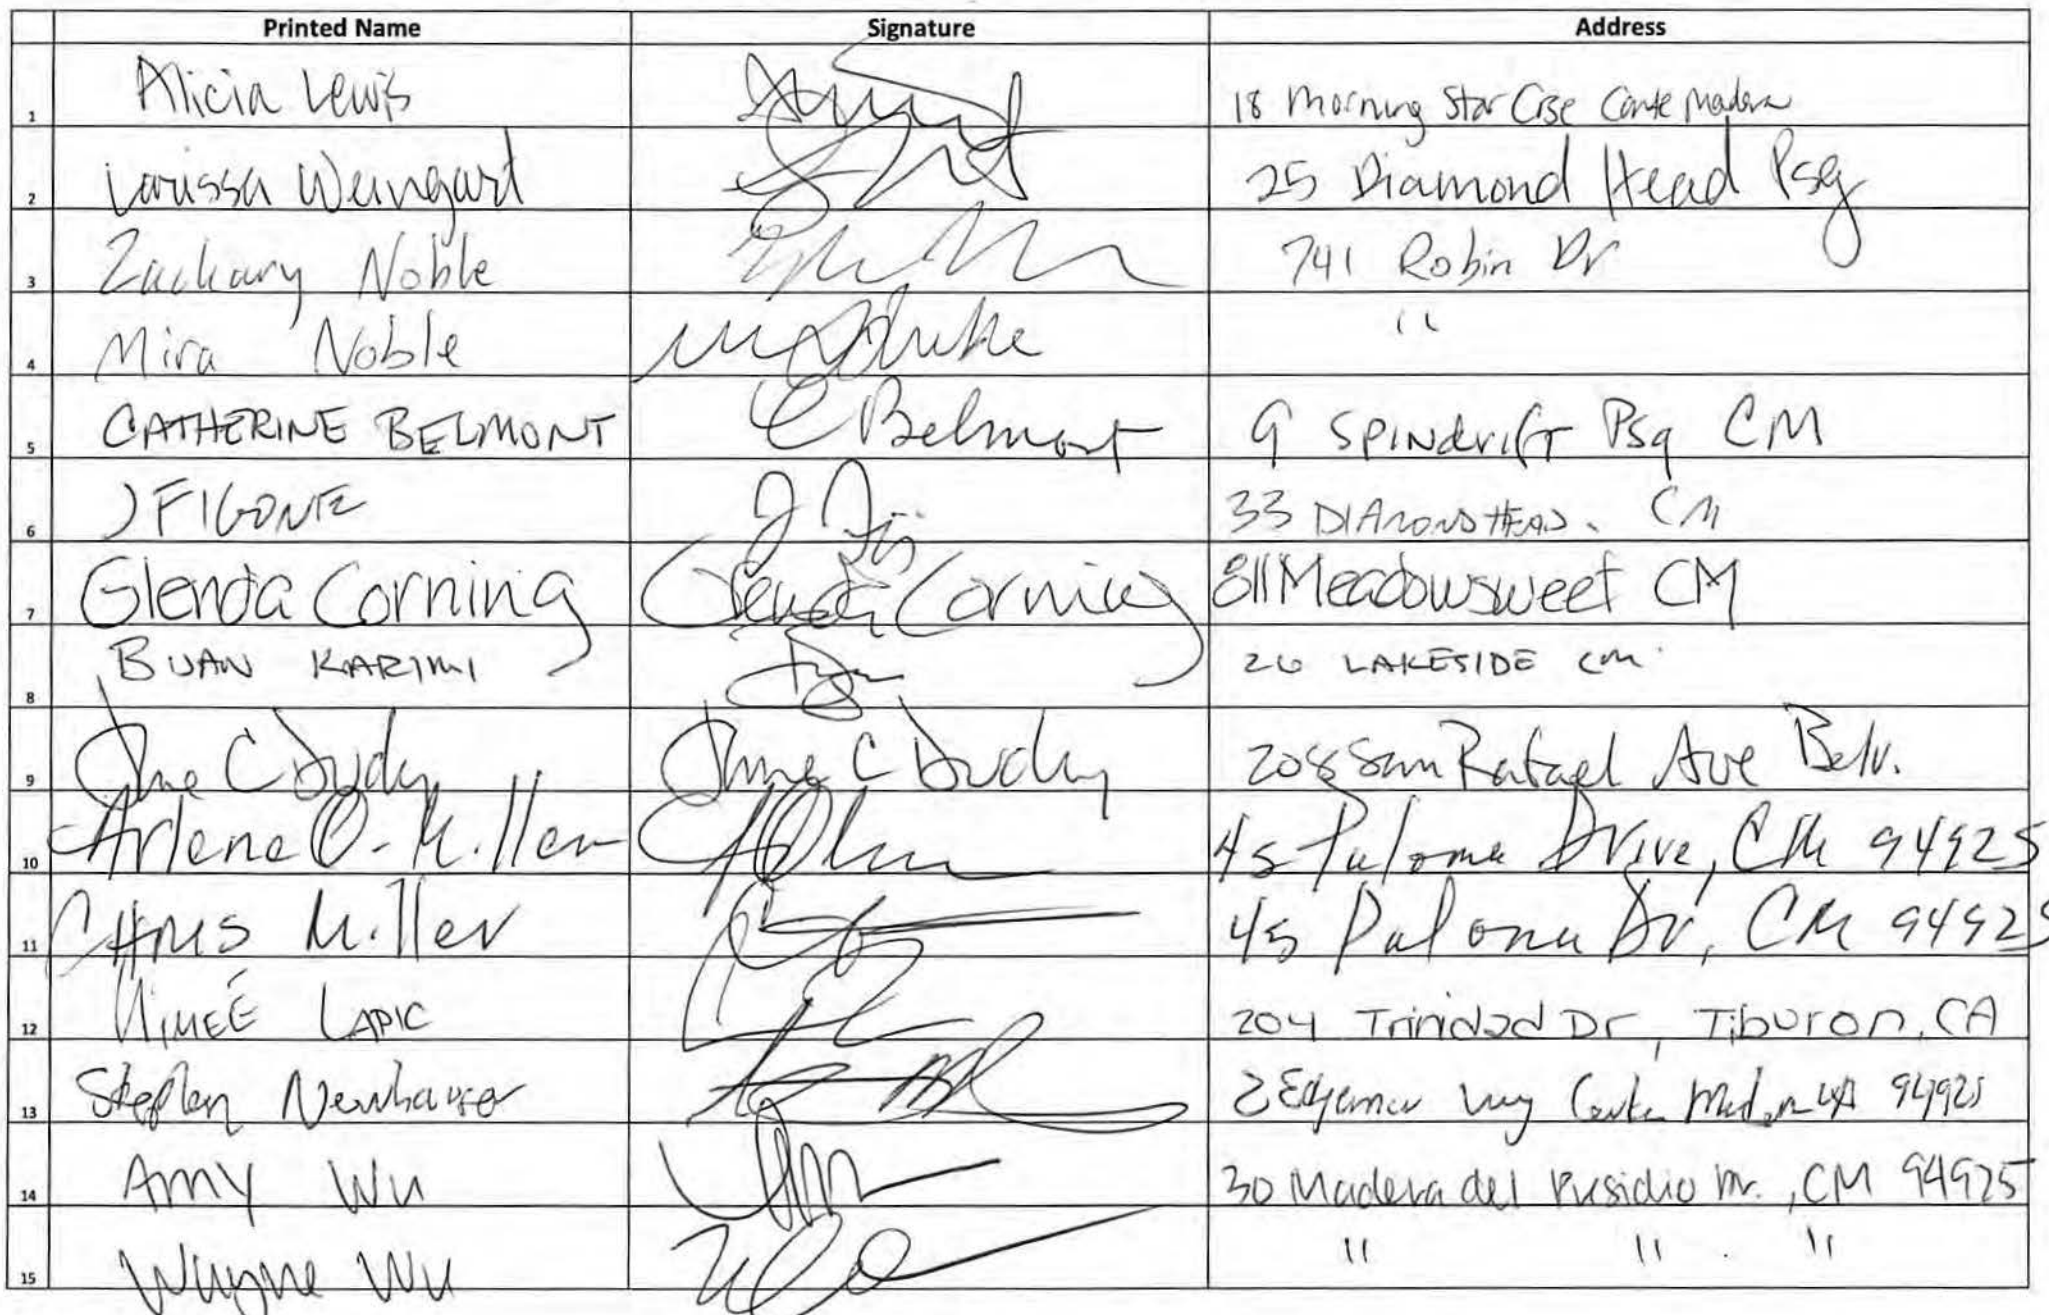 Printed Name Signature Address
1 Alicia Lewis 18 Morning Star Crse Corte Madera
2 Larissa Weingart 25 Diamond Head Psg
3 Zachary Noble 741 Robin Dr
4 Mira Noble "
5 CATHERINE BELMONT C Belmont 9 SPINdrifT Psg CM
6 J FIGONE J Fig 33 DIAMONDHEAD. CM
7 Glenda Corning Glenda Corning 811 Meadowsweet CM
8 KARIMI 26 LAKESIDE CM
9 C C 208 San Rafael Ave Belv.
10 Arlene O. Miller 45 Paloma Drive, CM 94925
11 CHRIS Miller 45 Paloma Dr, CM 94925
12 AIMEÉ LAPIC 204 Trinidad Dr, Tiburon, CA
13 Stephen Newhouser 2 Edgemar Way Corte Madera CA 94925
14 Amy Wu 30 Madera del Presidio Dr., CM 94925
15 Wayne Wu " " "